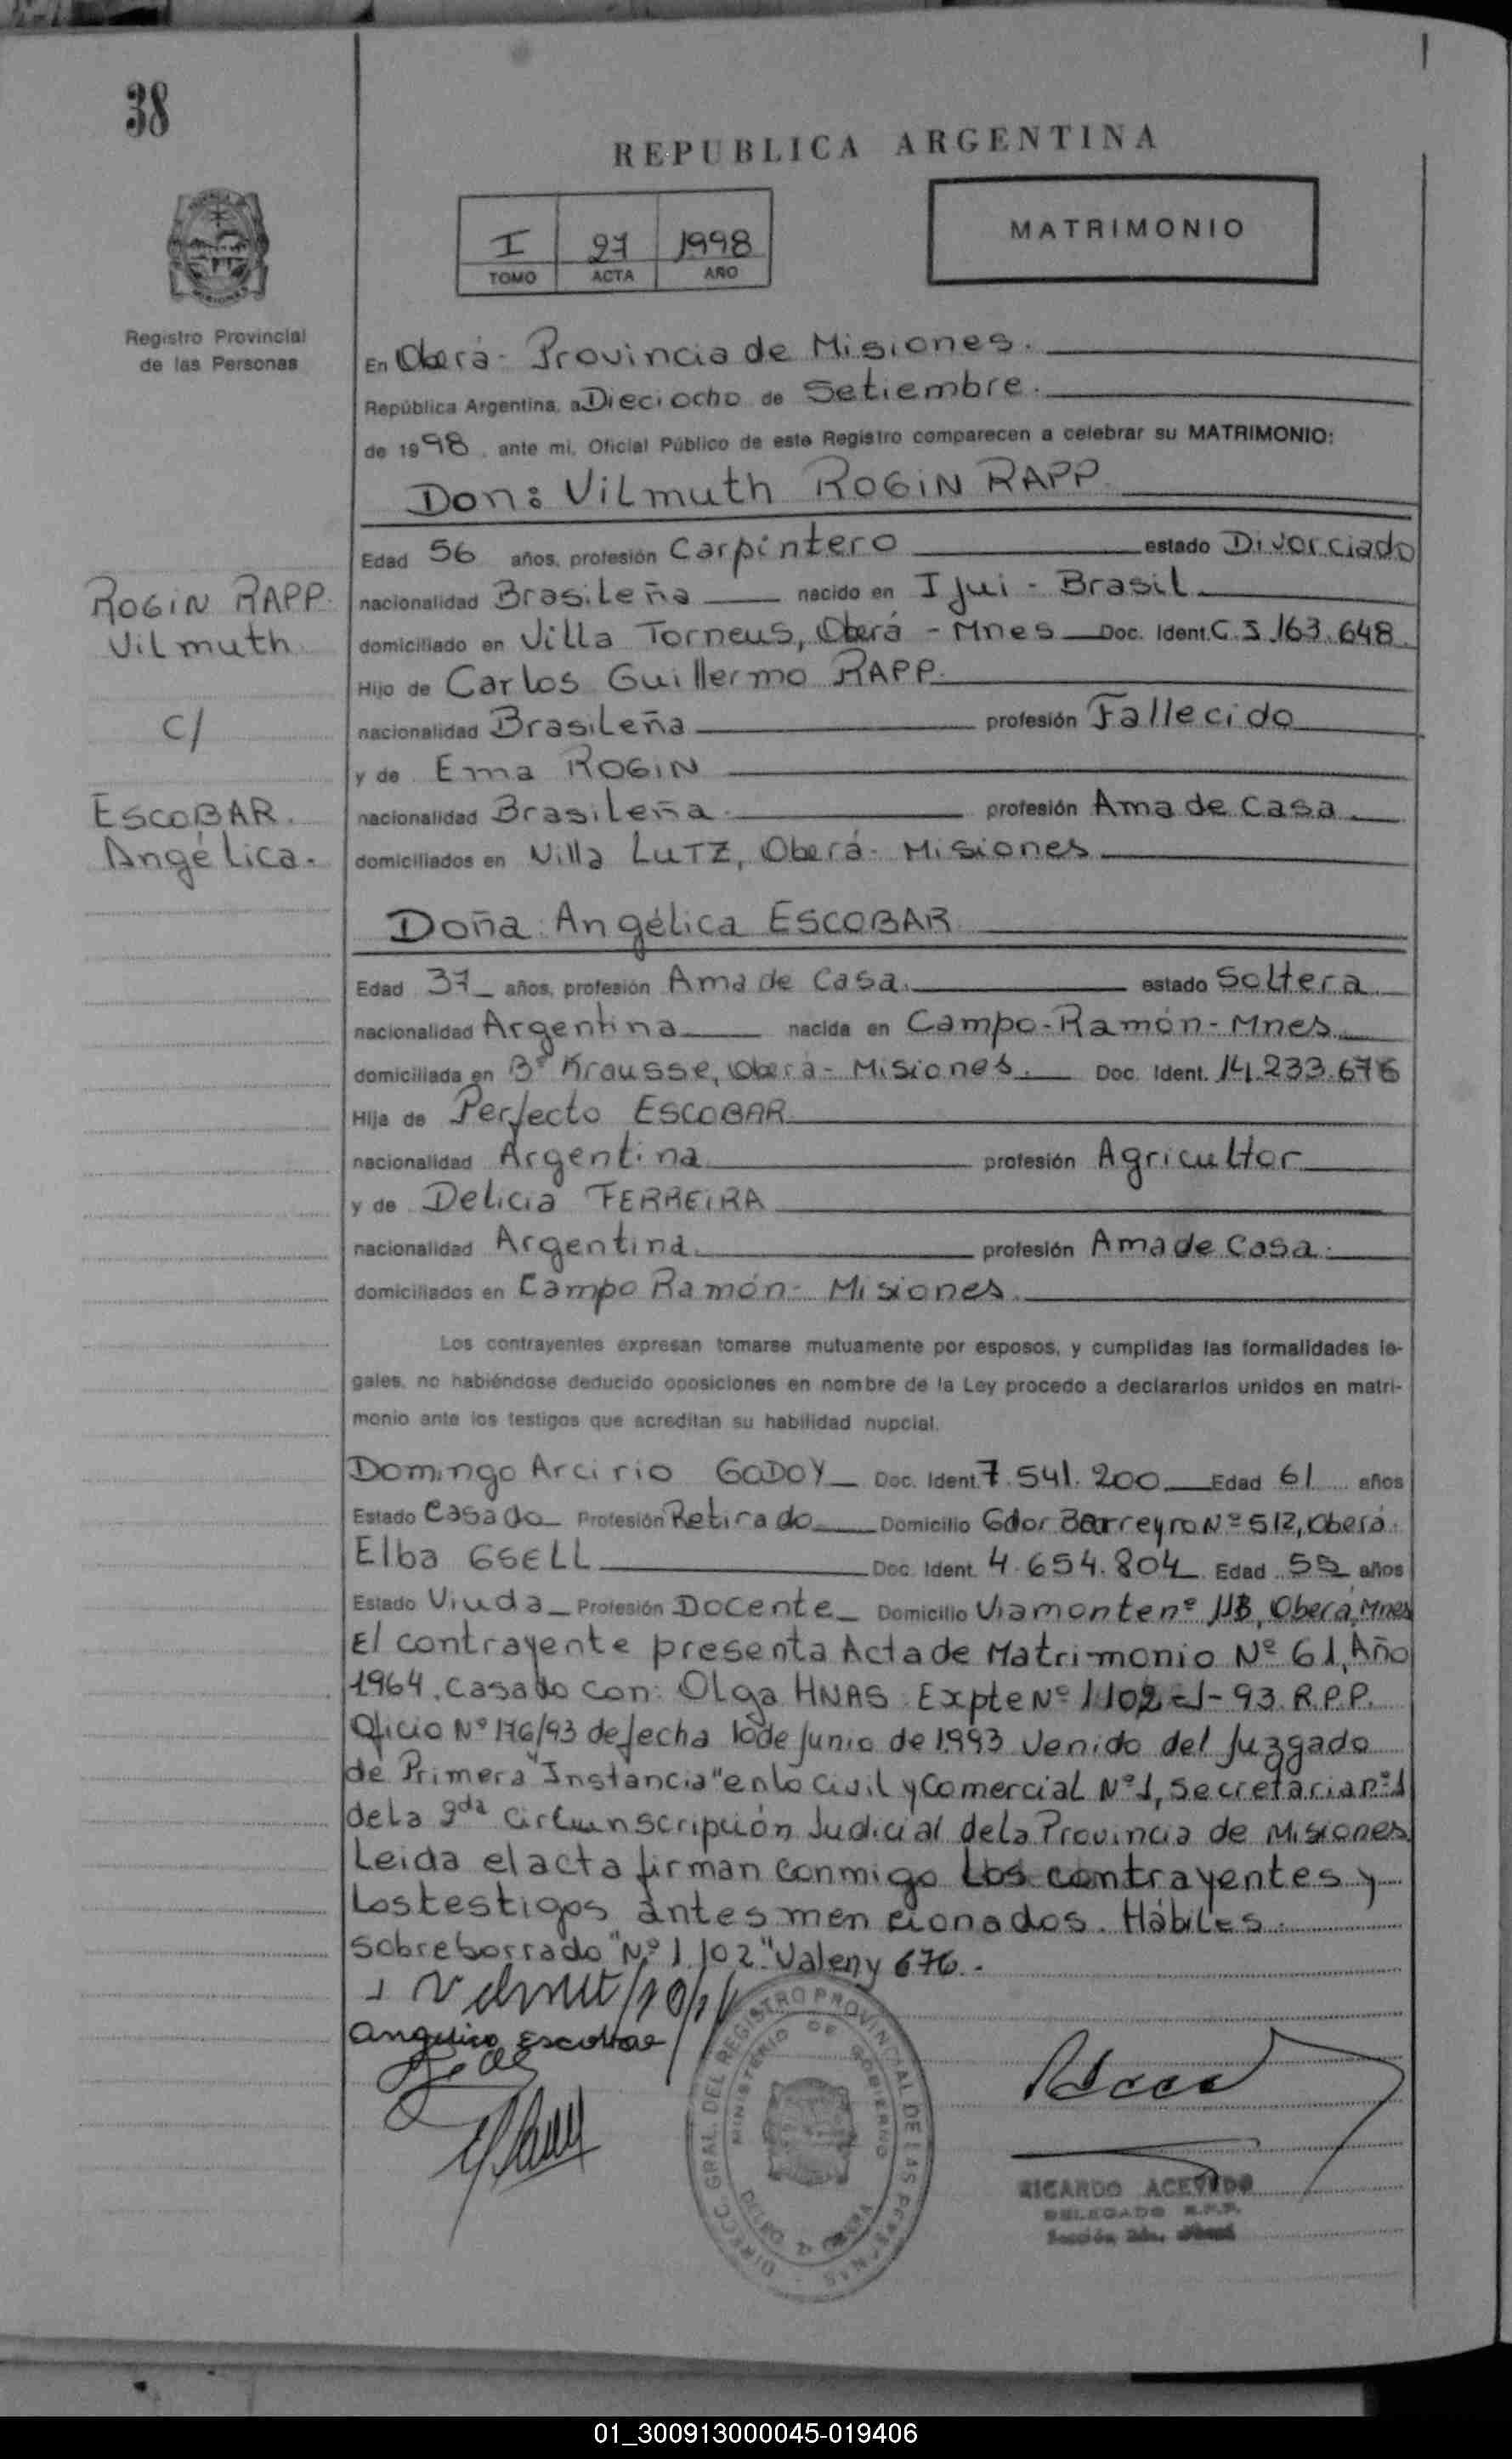 38
REPUBLICA ARGENTINA
I 27 1998
TOMO ACTA AÑO
MATRIMONIO
Registro Provincial
de las Personas
En Oberá - Provincia de Misiones.
República Argentina, a Dieciocho de Setiembre.
de 1998, ante mi, Oficial Público de este Registro comparecen a celebrar su MATRIMONIO:
Don: Vilmuth ROGIN RAPP.
Edad 56 años, profesión Carpintero estado Divorciado
ROGIN RAPP.
Vilmuth
c/
ESCOBAR.
Angélica.
nacionalidad Brasileña nacido en Ijui - Brasil
domiciliado en Villa Torneus, Oberá - Mnes Doc. Ident. C.I. 163.648.
Hijo de Carlos Guillermo RAPP.
nacionalidad Brasileña profesión Fallecido
y de Ema ROGIN
nacionalidad Brasileña. profesión Ama de Casa
domiciliados en Villa LUTZ, Oberá - Misiones
Doña: Angélica ESCOBAR
Edad 37 años, profesión Ama de Casa. estado Soltera
nacionalidad Argentina nacida en Campo-Ramón - Mnes
domiciliada en Bº Krausse, Oberá - Misiones. Doc. Ident. 14.233.676
Hija de Perfecto ESCOBAR
nacionalidad Argentina profesión Agricultor
y de Delicia FERREIRA
nacionalidad Argentina. profesión Ama de Casa.
domiciliados en Campo Ramón - Misiones.
Los contrayentes expresan tomarse mutuamente por esposos, y cumplidas las formalidades le-
gales, no habiéndose deducido oposiciones en nombre de la Ley procedo a declararlos unidos en matri-
monio ante los testigos que acreditan su habilidad nupcial.
Domingo Arcirio GODOY Doc. Ident. 7.541.200 Edad 61 años
Estado Casado Profesión Retirado Domicilio Gdor Barreyro Nº 512, Oberá.
Elba GSELL Doc. Ident. 4.654.804 Edad 55 años
Estado Viuda Profesión Docente Domicilio Viamonte nº Oberá, Mnes
El contrayente presenta Acta de Matrimonio Nº 61, Año
1964, Casado con: Olga HNAS Expte Nº 1102-J-93. R.P.P.
Oficio Nº 176/93 de fecha 10 de Junio de 1993 Venido del Juzgado
de Primera "Instancia" en lo Civil y Comercial Nº 1, Secretaria nº 1
de la 2da Circunscripción Judicial de la Provincia de Misiones
Leida el acta firman conmigo los contrayentes y
los testigos antes mencionados. Hábiles.
Sobreborrado "Nº 1.102" Valen y 676.-
Angelica Escobar
DIRECC. GRAL. DEL REGISTRO PROVINCIAL DE LAS PERSONAS
MINISTERIO DE GOBIERNO
RICARDO ACEVEDO
DELEGADO R.P.P.
01_300913000045-019406